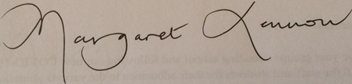 Margaret Lannon